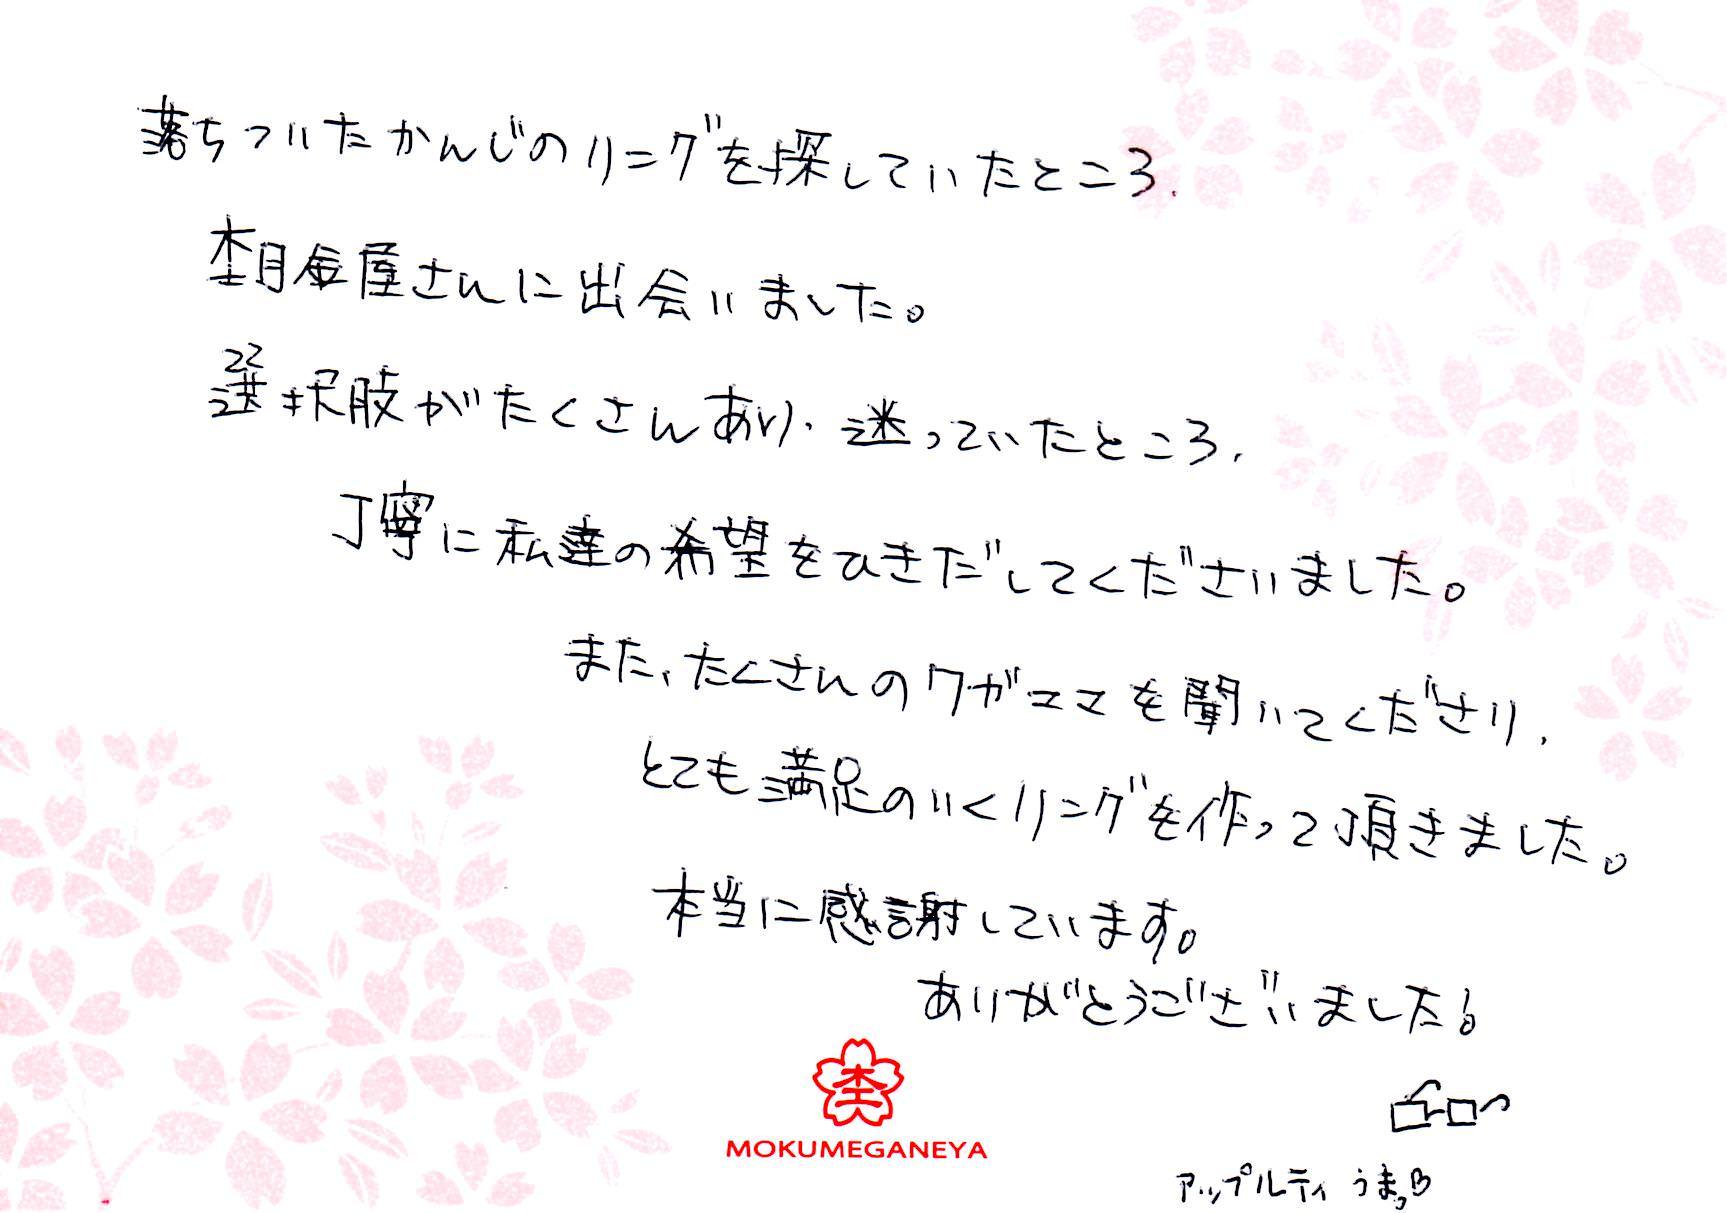 落ちついたかんじのリングを探していたところ、
杢目金屋さんに出会いました。
選択肢がたくさんあり、迷っていたところ、
丁寧に私達の希望をひきだしてくださいました。
また、たくさんのワガママを聞いてくださり、
とても満足のいくリングを作って頂きました。
本当に感謝しています。
ありがとうございました!
杢
MOKUMEGANEYA
アップルティ うまっ